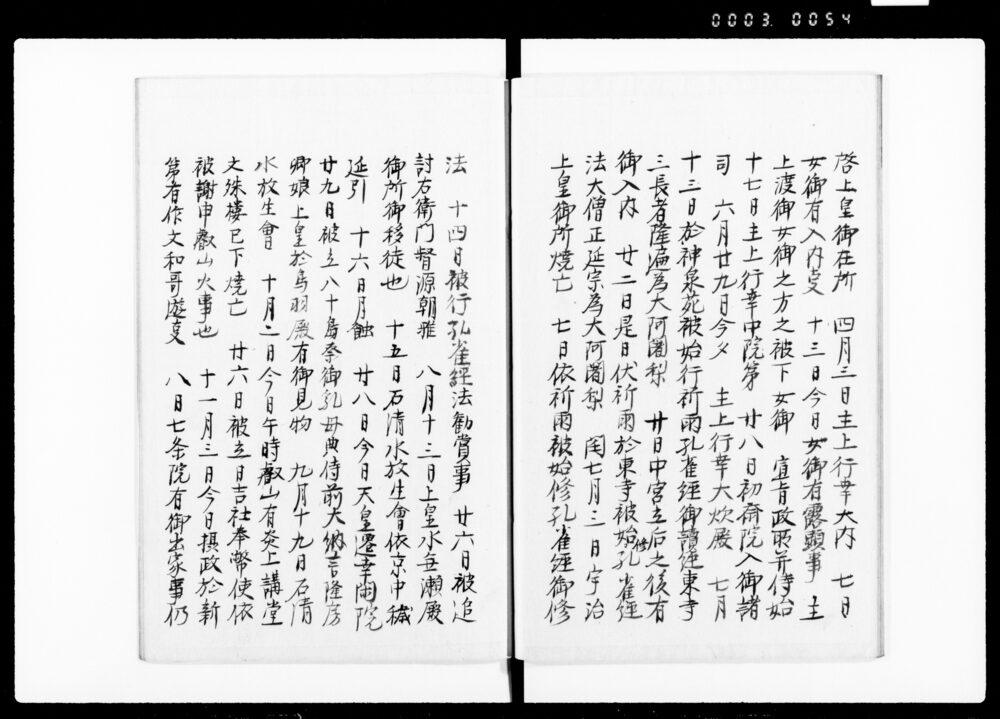 0003 0054
啓上皇御在所　四月三日主上行幸大内　七日
女御有入内叓　十三日今日女御有露顕事　主
上渡御女御之方之被下女御　宣旨政所并侍始
十七日主上行幸中院第　廿八日初斎院入御諸
司　六月廿九日今夕　主上行幸大炊殿　七月
十三日於神泉苑被始行祈雨孔雀經御讀經東寺
三長者隆遍為大阿闍梨　廿日中宮立后之後有
御入内　廿二日是日伏祈雨於東寺被始修孔雀經
法大僧正延宗為大阿闍梨　閏七月三日宇治
上皇御所焼亡　七日依祈雨被始修孔雀經御修
法　十四日被行孔雀經法勧賞事　廿六日被追
討右衛門督源朝雅　八月十三日上皇水無瀬殿
御所御移徒也　十五日石清水放生會依京中穢
延引　十六日月蝕　廿八日今日天皇遷幸閑院
廿九日被立八十嶋祭御乳母典侍前大納言隆房
卿娘上皇於鳥羽殿有御見物　九月十九日石清
水放生會　十月二日今日午時叡山有炎上講堂
文殊樓已下焼亡　廿六日被立日吉社奉幣使依
被謝申叡山火事也　十一月三日今日摂政於新
第有作文和哥遊叓　八日七条院有御出家事仍